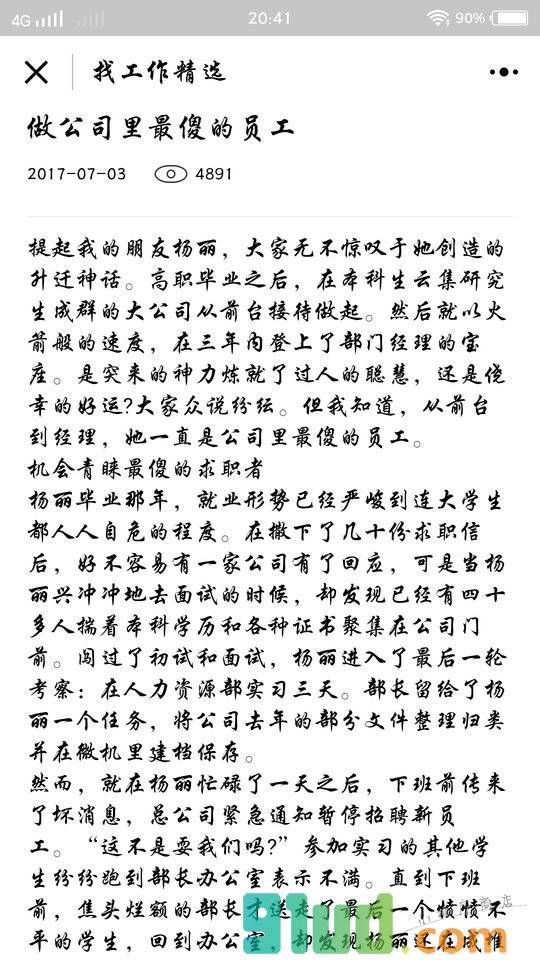 4G 20:41 90%
找工作精选
做公司里最傻的员工
2017-07-03 4891
提起我的朋友杨丽，大家无不惊叹于她创造的
升迁神话。高职毕业之后，在本科生云集研究
生成群的大公司从前台接待做起。然后就以火
箭般的速度，在三年内登上了部门经理的宝
座。是突来的神力炼就了过人的聪慧，还是侥
幸的好运?大家众说纷纭。但我知道，从前台
到经理，她一直是公司里最傻的员工。
机会青睐最傻的求职者
杨丽毕业那年，就业形势已经严峻到连大学生
都人人自危的程度。在撒下了几十份求职信
后，好不容易有一家公司有了回应，可是当杨
丽兴冲冲地去面试的时候，却发现已经有四十
多人揣着本科学历和各种证书聚集在公司门
前。闯过了初试和面试，杨丽进入了最后一轮
考察：在人力资源部实习三天。部长留给了杨
丽一个任务，将公司去年的部分文件整理归类
并在微机里建档保存。
然而，就在杨丽忙碌了一天之后，下班前传来
了坏消息，总公司紧急通知暂停招聘新员
工。“这不是耍我们吗?”参加实习的其他学
生纷纷跑到部长办公室表示不满。直到下班
前，焦头烂额的部长才送走了最后一个愤愤不
平的学生，回到办公室，却发现杨丽还在成堆
91ud.com